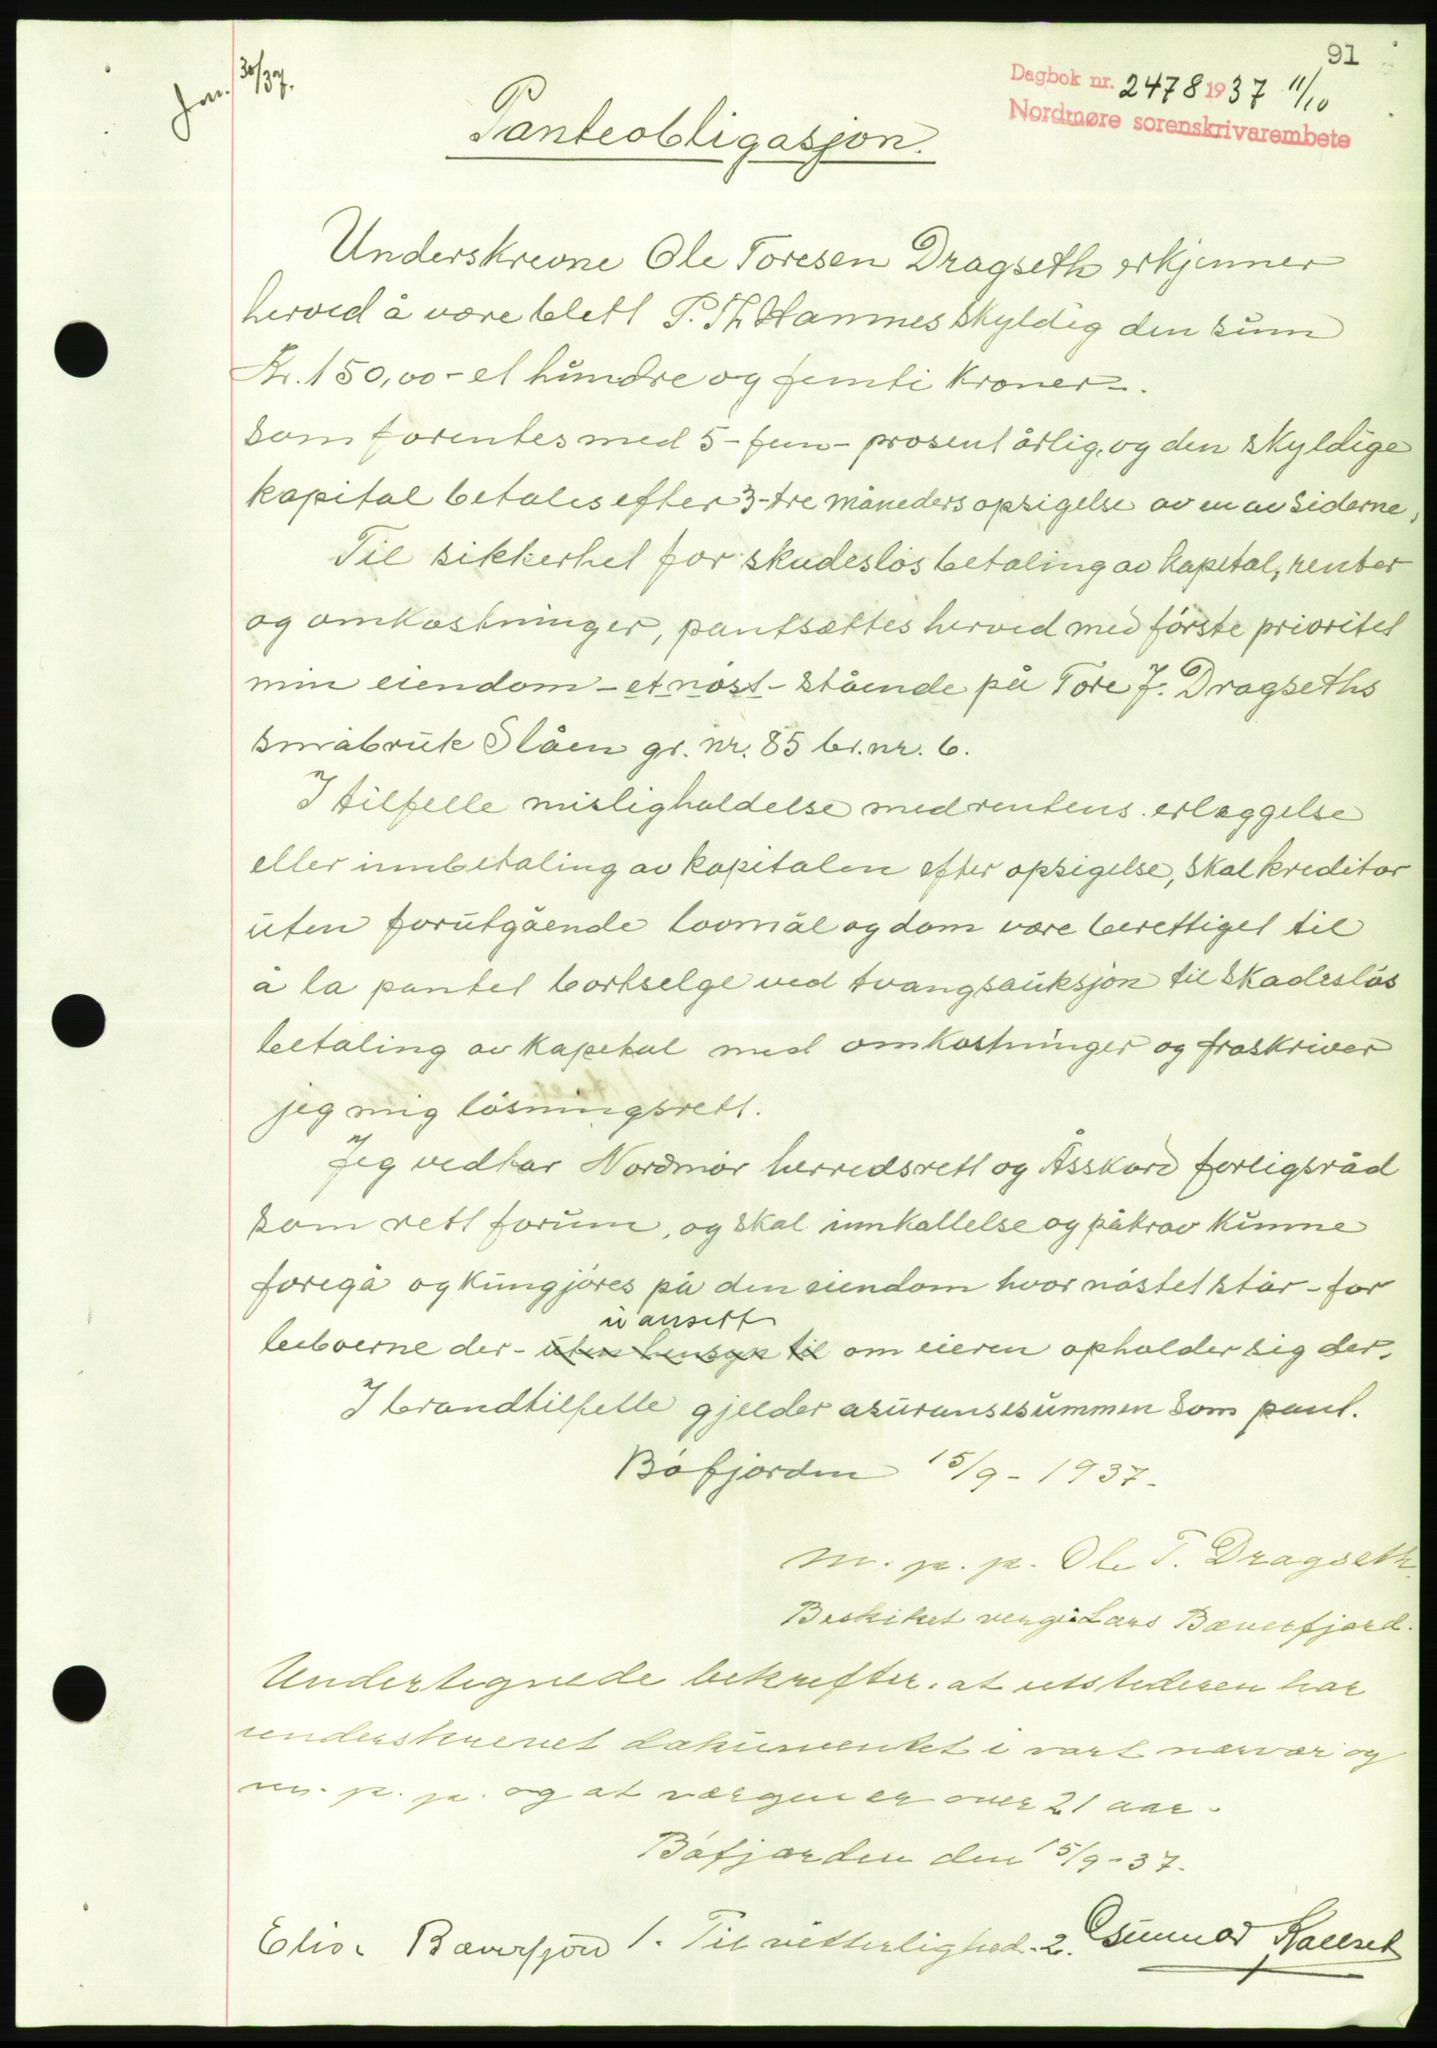 91
Dagbok nr. 2478 1937 11/10
Nordmøre sorenskrivarembete
30/37.
Panteobligasjon.
Underskrevne Ole Toresen Dragseth erkjenner
herved å være blett P. Th. Hamnes skyldig den sum
Kr. 150,00 - et hundre og femti kroner -.
som forentes med 5 - fem - prosent årlig, og den skyldige
kapital betales efter 3 - tre måneders opsigelse av en av siderne,
Til sikkerhet for skadesløs betaling av kapital, renter
og omkostninger, pantsættes herved med første prioritet
min eiendom - et nøst - stående på Tore J. Dragseths
småbruk Slåen gr. nr. 85 br. nr. 6.
I tilfelle misligholdelse med rentens erlæggelse
eller innbetaling av kapitalen efter opsigelse, skal kreditor
uten forutgående lovmål og dom være berettiget til
å la pantet bortselge ved tvangsauksjon til skadesløs
betaling av kapital med omkostninger og fraskriver
jeg mig løsningsrett.
Jeg vedtar Nordmør herredsrett og Åsskard forligsråd
som rett forum, og skal innkallelse og påkrav kunne
foregå og kungjøres på den eiendom hvor nøstet står - for
uansett
beboerne der - uten hensyn til om eieren opholder sig der.
I brandtilfelle gjelder asuransesummen som pant.
Bøfjorden 15/9 - 1937.
m. p. p. Ole T. Dragseth.
Beskiket verge: Lars Bæverfjord.
Undertegnede bekrefter, at utstederen har
underskrevet dokumentet i vart nærvær og
m. p. p. og at værgen er over 21 aar.
Bøfjorden den 15/9 - 37.
Bæverfjord 1. Til vitterlighed. 2. Gunnar Kallset